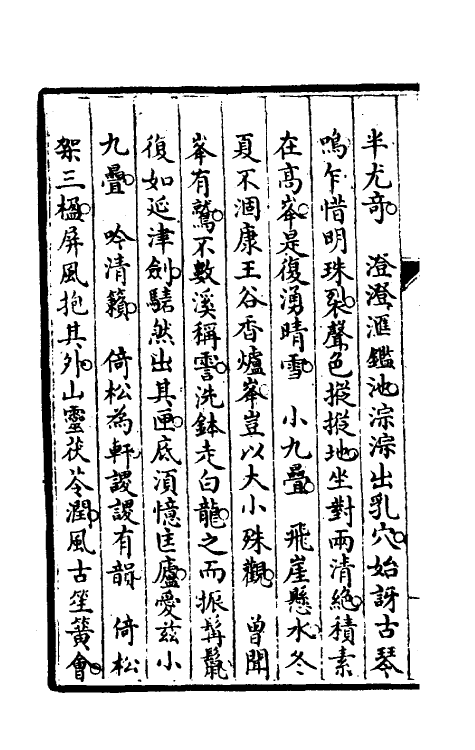 半尤奇　澄澄滙鑑池淙淙出乳穴始訝古琴
鳴乍惜明珠裂聲色摐摐地坐對兩清絶積素
在高峯是復湧晴雪　小九疊　飛崖懸水冬
夏不涸康王谷香爐峯豈以大小殊觀　曾聞
峯有鷲不數溪稱雩洗鉢走白龍之而振髯鬣
復如延津劍騞然出其匣底湏憶匡廬愛兹小
九疊　吟清籟　倚松為軒謖謖有韻　倚松
架三楹屏風抱其外山靈茯苓潤風古笙簧會